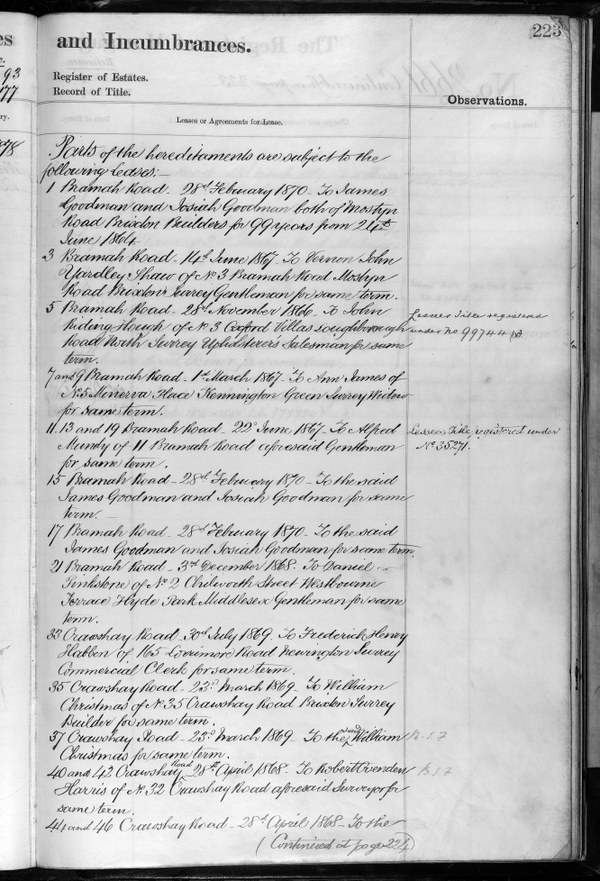 es
93
77
ry.
878
223
and Incumbrances.
Register of Estates.
Record of Title.
Observations.
Leases or Agreements for Lease.
Parts of the hereditaments are subject to the
following leases:—
1 Bramah Road - 28th February 1870. To James
Goodman and Josiah Goodman both of Mostyn
Road Brixton Builders for 99 years from 24th
June 1864
3 Bramah Road - 14th June 1867 - To Vernon John
Yardley Shaw of No 3 Bramah Road Mostyn
Road Brixton Surrey Gentleman for same term.
5 Bramah Road - 28th November 1866 - To John
Riding Hough of No 3 Oxford Villas Loughborough
Road North Surrey Upholsterers Salesman for same
term.
Lessees Title registered
under No 99744
7 and 9 Bramah Road - 1st March 1867 - To Ann James of
No 5 Minerva Place Kennington Green Surrey Widow
for same term.
11. 13 and 19 Bramah Road - 22nd June 1867. To Alfred
Mundy of 11 Bramah Road aforesaid Gentleman
for same term.
Lessees Title registered under
No 35271.
15 Bramah Road - 28th February 1870 - To the said
James Goodman and Josiah Goodman for same
term. -
17 Bramah Road - 28th February 1870 - To the said
James Goodman and Josiah Goodman for same term.
21 Bramah Road - 3rd December 1868. To Daniel
Pinkstone of No 2 Chilworth Street Westbourne
Terrace Hyde Park Middlesex Gentleman for same
term.
33 Crawshay Road - 30th July 1869. To Frederick Henry
Habben of 165 Lorrimore Road Newington Surrey
Commercial Clerk for same term.
35 Crawshay Road - 23rd March 1869 - To William
Christmas of No 35 Crawshay Road Brixton Surrey
Builder for same term.
37 Crawshay Road - 23rd March 1869 - To the said William
Christmas for same term.
40 and 42 Crawshay Road 28th April 1868 - To Robert Ovenden
Harris of No 32 Crawshay Road aforesaid Surveyor for
same term.
44 and 46 Crawshay Road - 28th April 1868 - To the
(Continued at page 224)